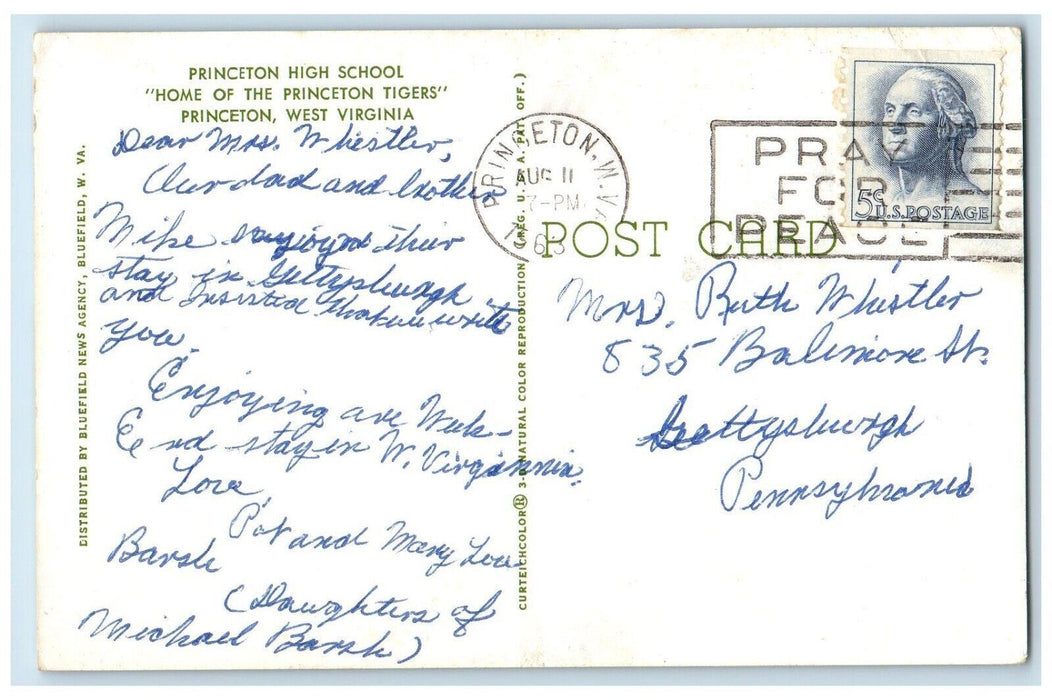 PRINCETON HIGH SCHOOL
"HOME OF THE PRINCETON TIGERS"
PRINCETON, WEST VIRGINIA
Dear Mrs. Whistler,
Our dad and brother
Mike enjoyed their
stay in Gettysburgh
and insisted that we write
you.
Enjoying are Week-
End stay in W. Virginnia.
Love,
Pat and Mary Lou
Barsh
(Daughters of
Michael Barsh)
DISTRIBUTED BY BLUEFIELD NEWS AGENCY, BLUEFIELD, W. VA.
CURTEICHCOLOR® 3-D NATURAL COLOR REPRODUCTION (REG. U.S.A. PAT. OFF.)
PRINCETON, W.VA.
AUG 11
PM
1963
PRAY
FOR
PEACE
5¢
U.S. POSTAGE
POST CARD
Mrs. Ruth Whistler
835 Balimore St.
Gettysburgh
Pennsylvania